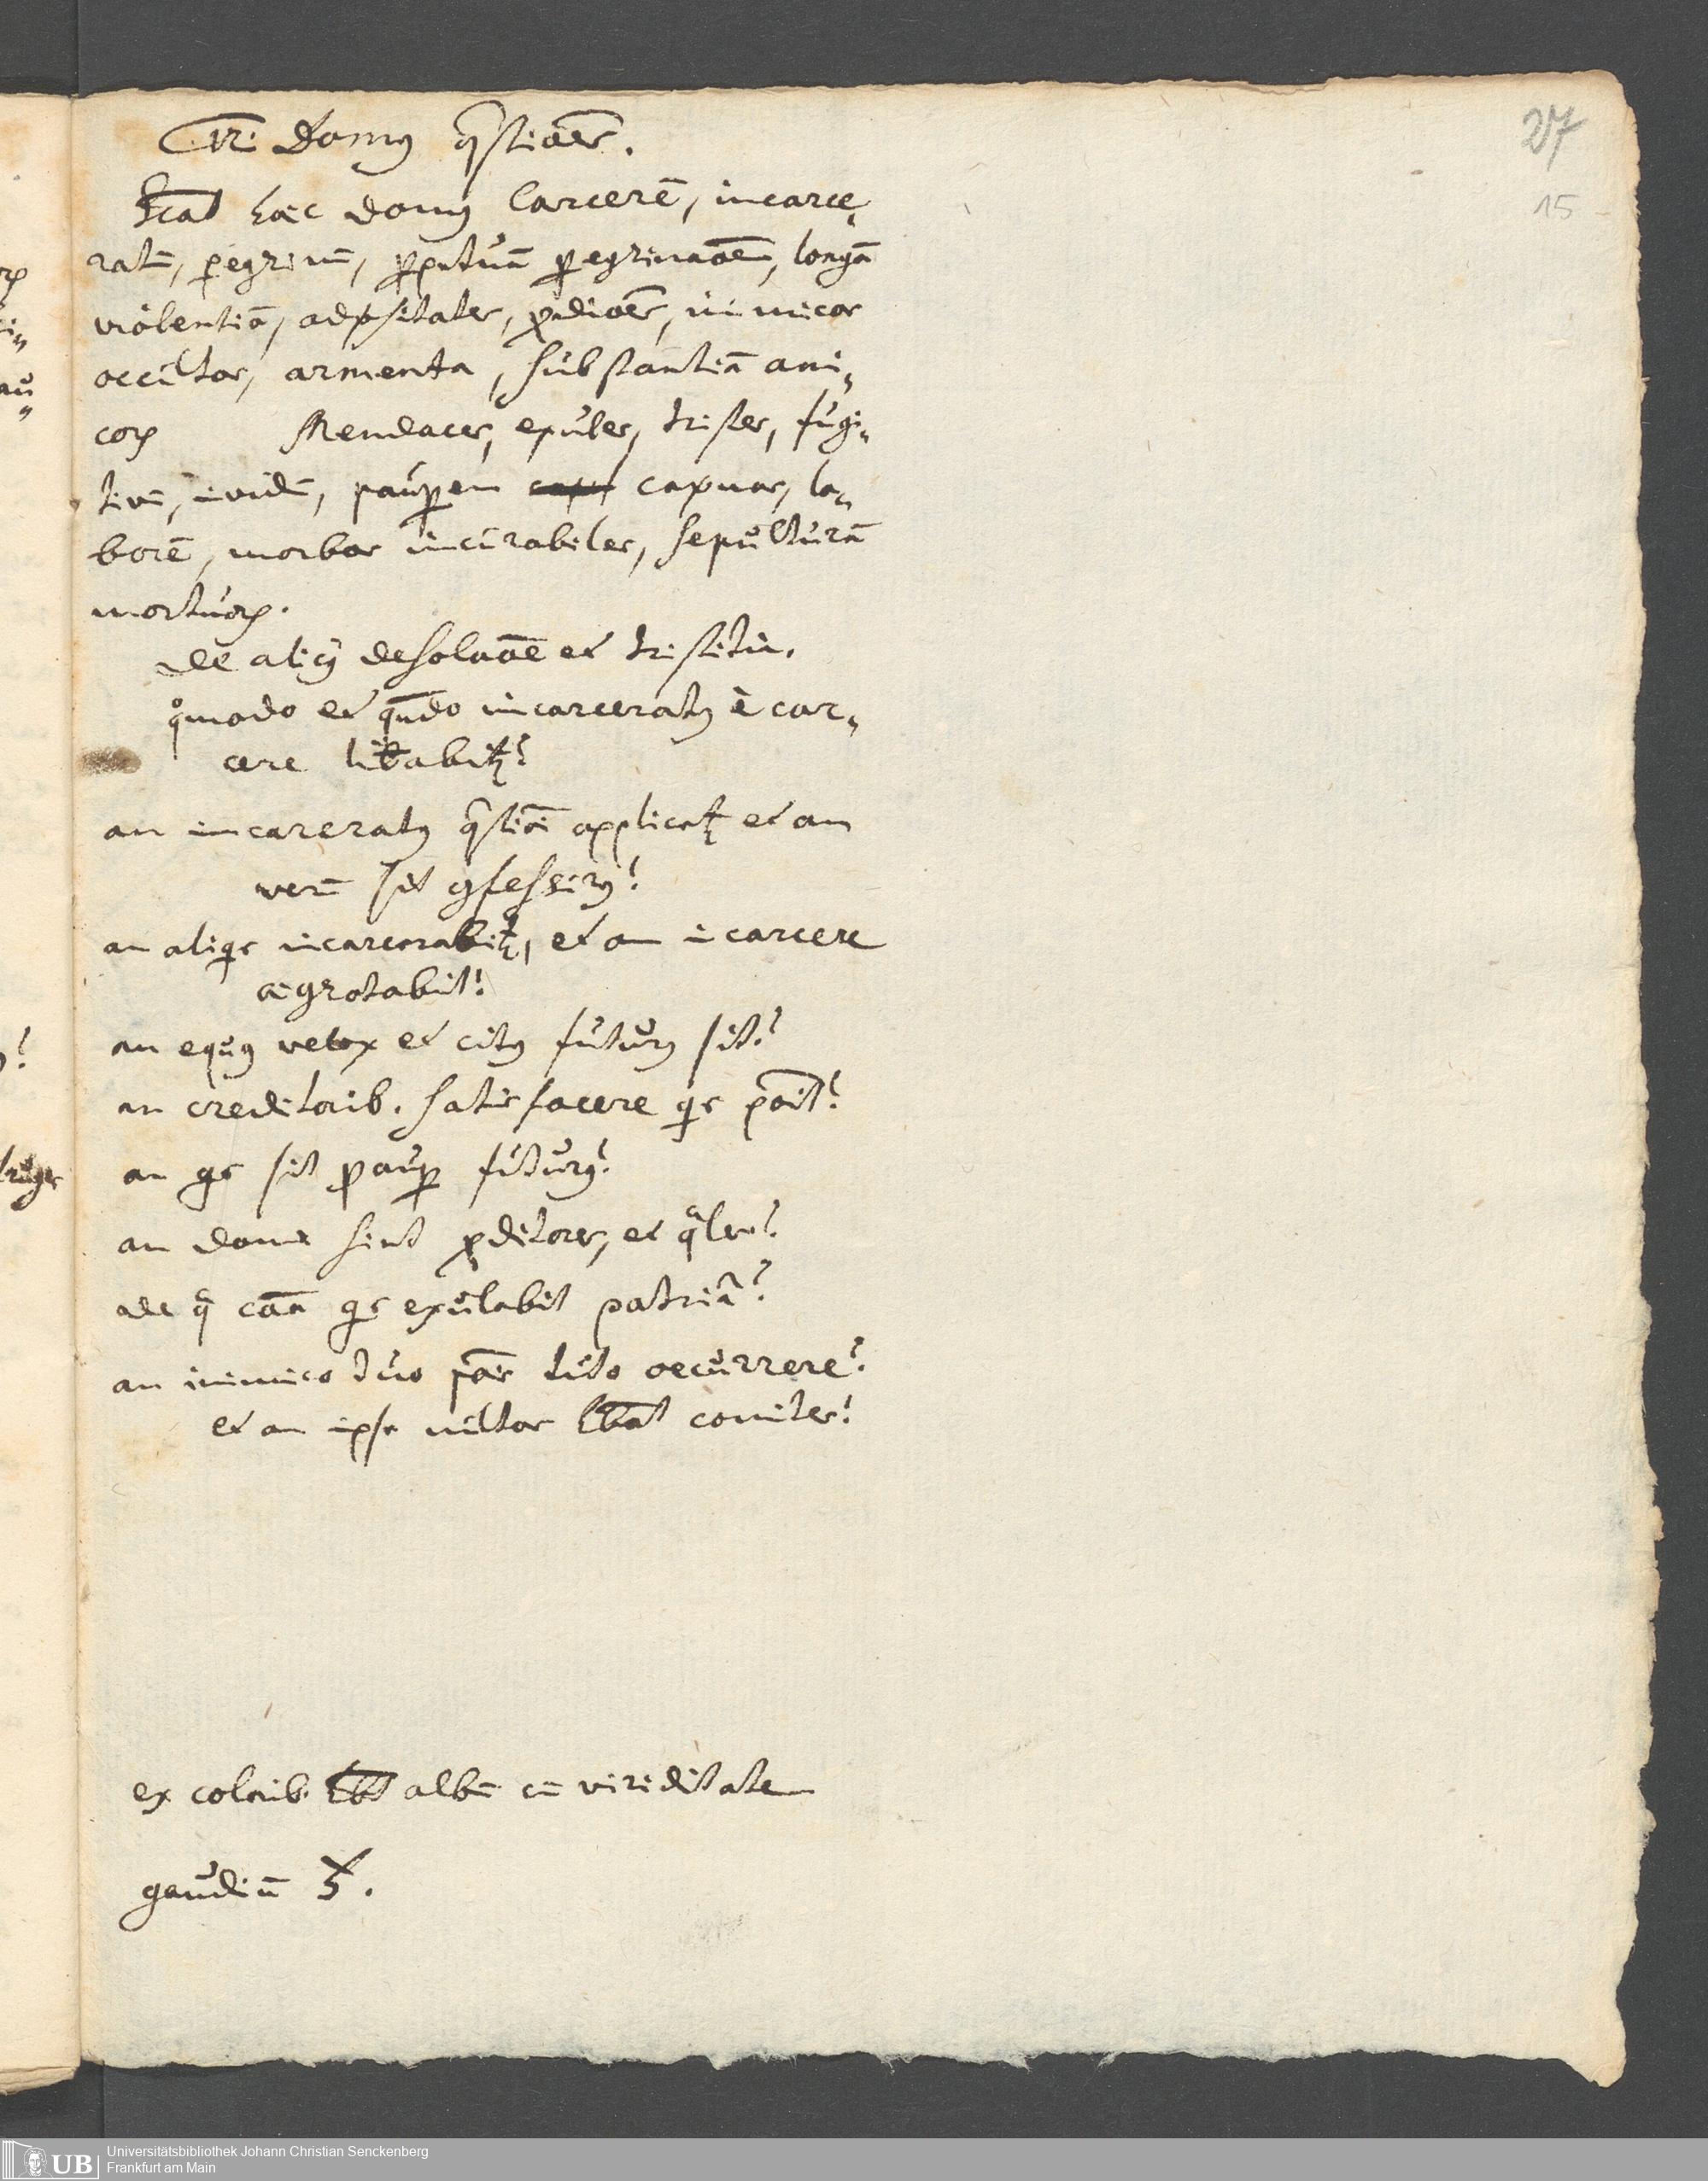 27
15
12. domꝰ qᷓstiões.
Scat haec domꝰ Carcerē, incarce„
ratū, peregrinū, ꝑpetuā ꝑegrinaõem, longā
violentiā, adꝟsitates, ꝓditiões, inimicos
occultos, armenta, substantiā ami„
coꝝ Mendaces, exules, tristes, fugi„
tivū, invidū, pauꝑem capnos, la„
borē, morbos incurabiles, sepulturā
mortuoꝝ.
De alicꝰ desolaõe et tristitia.
qͦmodo et qn̄do incarceratꝰ è car„
cere libabit᷑?
an incarceratꝰ qᷓstiõi applicet᷑ et an
verū sit ꝯfessurꝰ?
an aliqs incarcerabit᷑, et an ī carcere
aegrotabit?
an equꝰ velox et citꝰ futurꝰ sit?
an creditorib. satisfacere qs poīt?
an qs sit pauꝑ futurꝰ?
an domi sint ꝓditores, et qᷓles?
de qᷓ cāā qs exulabit patriā?
an inimico tuo pōīs tuto occurrere?
et an ipse multos hēāt comites?
ex colorib. hēt albū cū viriditate
gaudiū ♄.
Universitätsbibliothek Johann Christian Senckenberg
Frankfurt am Main
UB